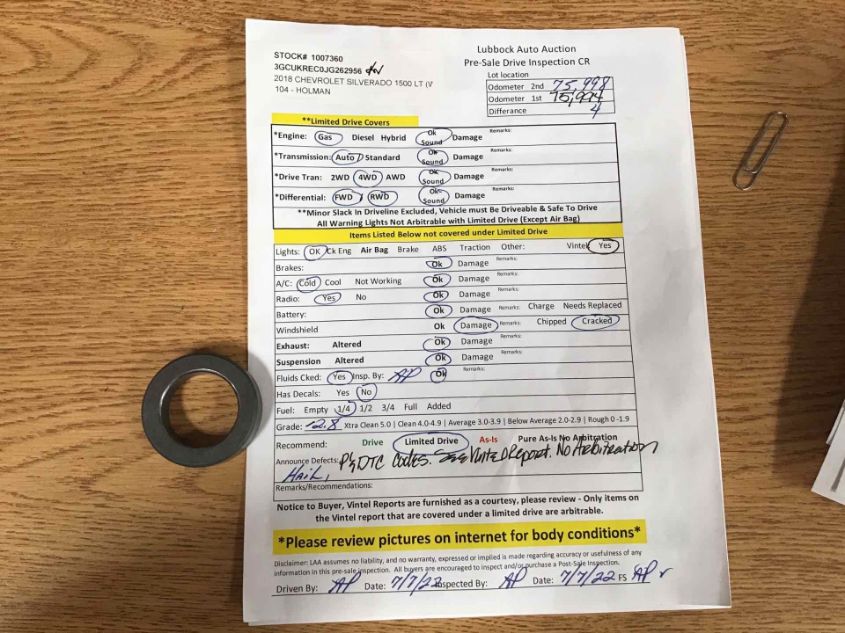 Lubbock Auto Auction
Pre-Sale Drive Inspection CR
STOCK# 1007360
3GCUKREC0JG262956
2018 CHEVROLET SILVERADO 1500 LT (V
104 - HOLMAN
Lot location
Odometer 2nd 75,998
Odometer 1st 75,994
Differance 4
**Limited Drive Covers
*Engine: Gas Diesel Hybrid Ok Sound Damage Remarks:
*Transmission: Auto / Standard Ok Sound Damage Remarks:
*Drive Tran: 2WD 4WD AWD Ok Sound Damage Remarks:
*Differential: FWD / RWD Ok Sound Damage Remarks:
**Minor Slack In Driveline Excluded, Vehicle must Be Driveable & Safe To Drive
All Warning Lights Not Arbitrable with Limited Drive (Except Air Bag)
Items Listed Below not covered under Limited Drive
Lights: OK Ck Eng Air Bag Brake ABS Traction Other: Vintel Yes
Brakes: Ok Damage Remarks:
A/C: Cold Cool Not Working Ok Damage Remarks:
Radio: Yes No Ok Damage Remarks:
Battery: Ok Damage Remarks: Charge Needs Replaced
Windshield Ok Damage Remarks: Chipped Cracked
Exhaust: Altered Ok Damage Remarks:
Suspension Altered Ok Damage Remarks:
Fluids Cked: Yes Insp. By: AP Ok Remarks:
Has Decals: Yes No
Fuel: Empty 1/4 1/2 3/4 Full Added
Grade: 2.8 Xtra Clean 5.0 | Clean 4.0-4.9 | Average 3.0-3.9 | Below Average 2.0-2.9 | Rough 0 -1.9
Recommend: Drive Limited Drive As-Is Pure As-Is No Arbitration
Announce Defects: DTC Codes. See Vintel Report. No Arbitration
Hail,
Remarks/Recommendations:
Notice to Buyer, Vintel Reports are furnished as a courtesy, please review - Only items on
the Vintel report that are covered under a limited drive are arbitrable.
*Please review pictures on internet for body conditions*
Disclaimer: LAA assumes no liability, and no warranty, expressed or implied is made regarding accuracy or usefulness of any
information in this pre-sale inspection. All buyers are encouraged to inspect and/or purchase a Post-Sale Inspection.
Driven By: AP Date: 7/7/22 Inspected By: AP Date: 7/7/22 FS AP